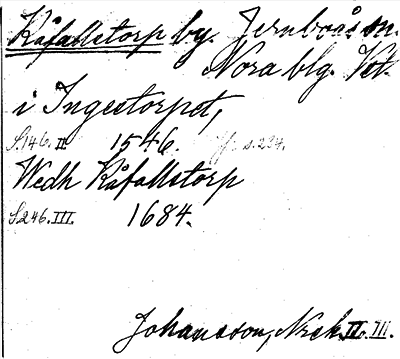 Kåfallstorp by. Jernboås sn.
Nora blg. Vst.
i Ingestorpet,
S.146. II 1546. Jf. s.234.
Wedh Kåfallstorp
S.246. III. 1684.
Johansson, Nzek. II. III.